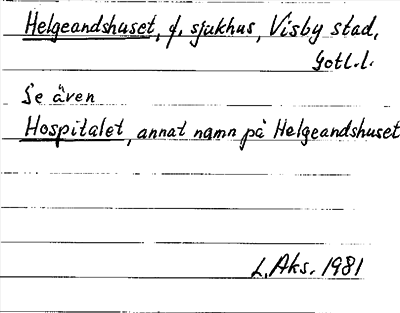 Helgeandshuset, f. sjukhus, Visby stad,
Gotl.l.
Se även
Hospitalet, annat namn på Helgeandshuset
L. Aks. 1981